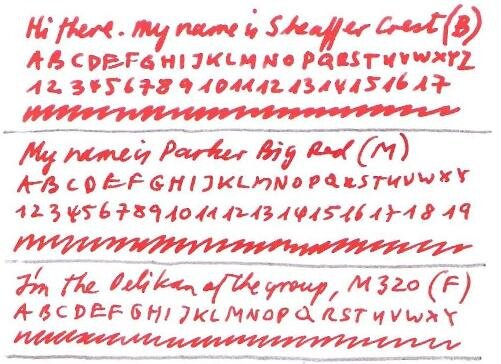 Hi there. My name is Sheaffer Crest (B)
ABCDEFGHIJKLMNOPQRSTUVWXYZ
1 2 3 4 5 6 7 8 9 10 11 12 13 14 15 16 17
My name is Parker Big Red (M)
ABCDEFGHIJKLMNOPQRSTUVWXY
1 2 3 4 5 6 7 8 9 10 11 12 13 14 15 16 17 18 19
I'm the Pelikan of the group, M320 (F)
ABCDEFGHIJKLMNOPQRSTUVWXY